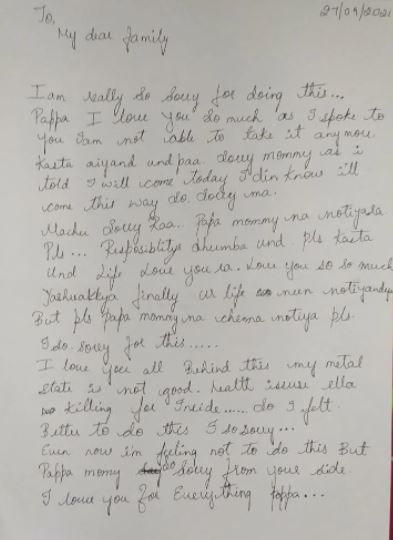 27/09/2021
To,
My dear family
I am really so sorry for doing this...
Pappa I love you so much as I spoke to
you I am not able to take it anymore.
Kasta aiyand und paa. Sorry mommy as i
told I will come today I din know i'll
come this way do. Sorry ma.
Machu Sorry Raa.. Papa mommy na notiyasla
Pls... Resposiblitys dhumba und. Pls Kasta
Und Life Love you ra. Love you so so much
finally ur life nun
But pls papa mommy na chenna notiya pls.
I do. Sorry for this.....
I love you all Behind this my metal
State is not good. health issuse ella
killing for Inside...... So I felt.
Better to do this I so sorry...
Even now im feling not to do this But
Pappa momy so Sorry from your side.
I love you for Everything Pappa...